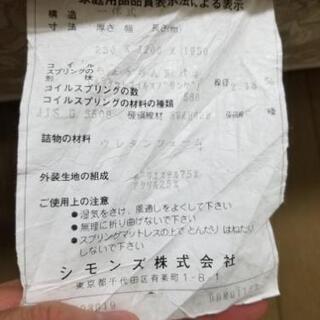 家庭用品品質表示法による表示
構造 一体式
寸法 厚さ 幅 長さ
230 X 1200 X 1950
コイル
スプリングの
形状
線径
コイルスプリングの数 588
コイルスプリングの材料の種類
JIS G 3506 硬鋼線材
詰物の材料
ウレタンフォーム
外装生地の組成
ポリエステル75%
アクリル25%
ご使用上の注意
●湿気をさけ、風通しをよくして下さい
●無理に折り曲げないで下さい
●スプリングマットレスの上で とんだり はねたり
しないで下さい
シモンズ株式会社
東京都千代田区有楽町1-8-1